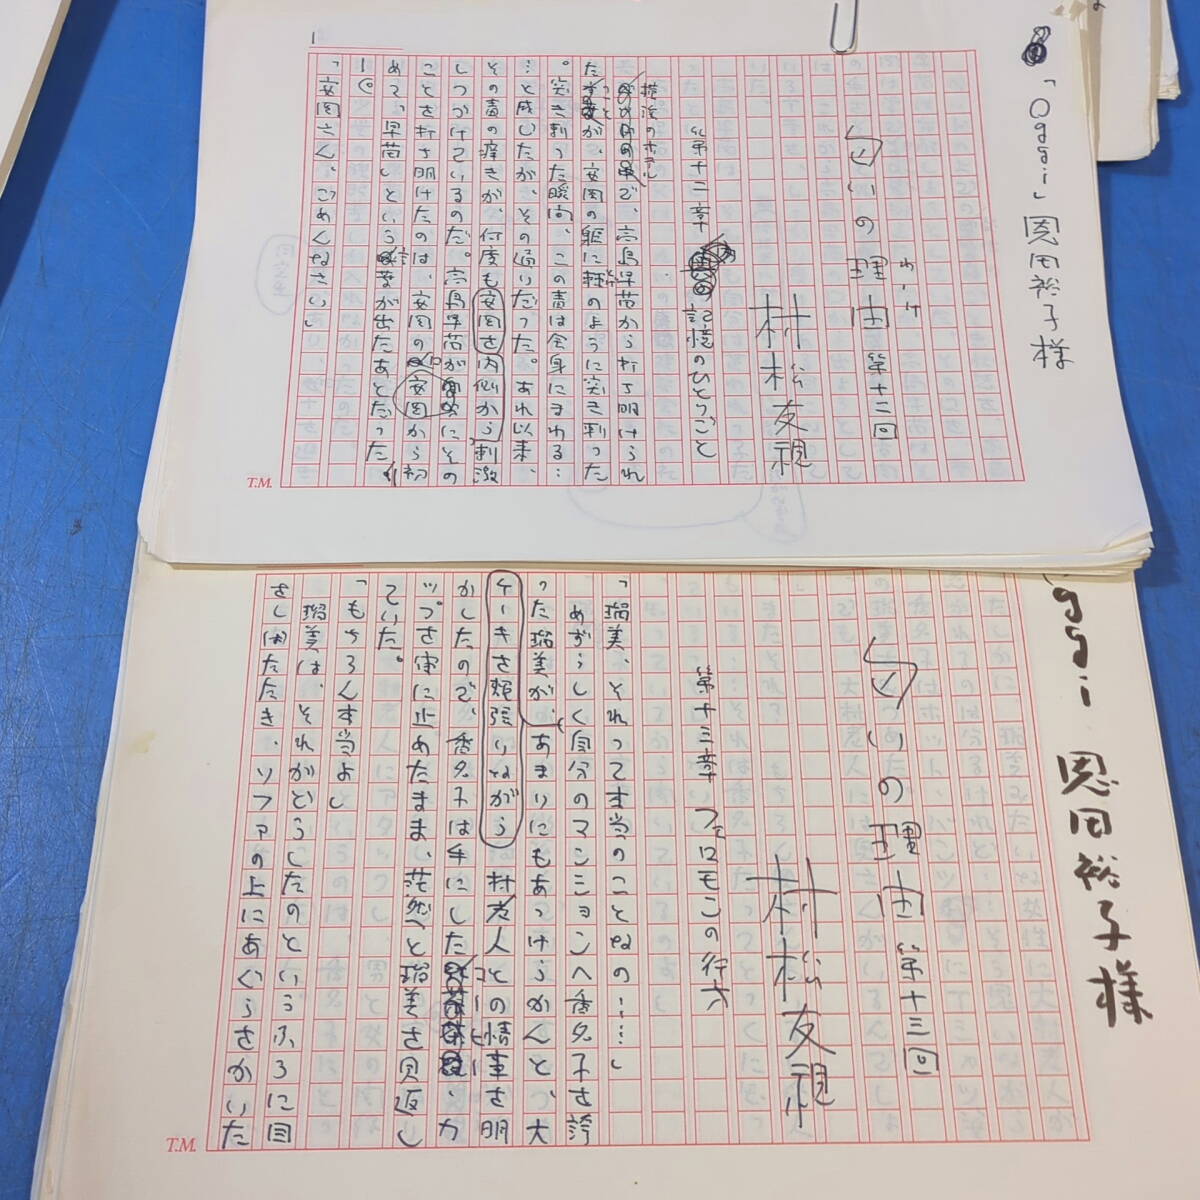 「Oggi」恩田裕子様
匂いの理由 第十二回
わけ
村松友視
第十二章 記憶のひとりごと
横浜のホテル
で、高島早苗から打ち明けられ
たことが、安岡の躯に棘のように突き刺った
。突き刺った瞬間、この毒は全身にまわる…
…と感じたが、その通りだった。あれ以来、
その毒の痒きが、何度も安岡を内側から刺激
しつづけているのだ。高島早苗が安岡にその
ことを打ち明けたのは、安岡の 安岡から初
めて、「早苗」という言葉が出たあとだった
1
「安岡さん、ごめんなさい」
T.M.
Oggi 恩田裕子様
匂いの理由 第十三回
村松友視
第十三章 フェロモンの行方
「瑠美、それって本当のことなの……」
めずらしく自分のマンションへ香名子を誘
った瑠美が、あまりにもあっけらかんと、大
ケーキを頬張りながら 村友人との情事を明
かしたので、香名子は手にしたコーヒー・カ
ップを宙に止めたまま、茫然と瑠美を見返し
ていた。
「もちろん本当よ」
瑠美は、それがどうしたのというふうに目
をしばたたき、ソファの上にあぐらをかいた
T.M.